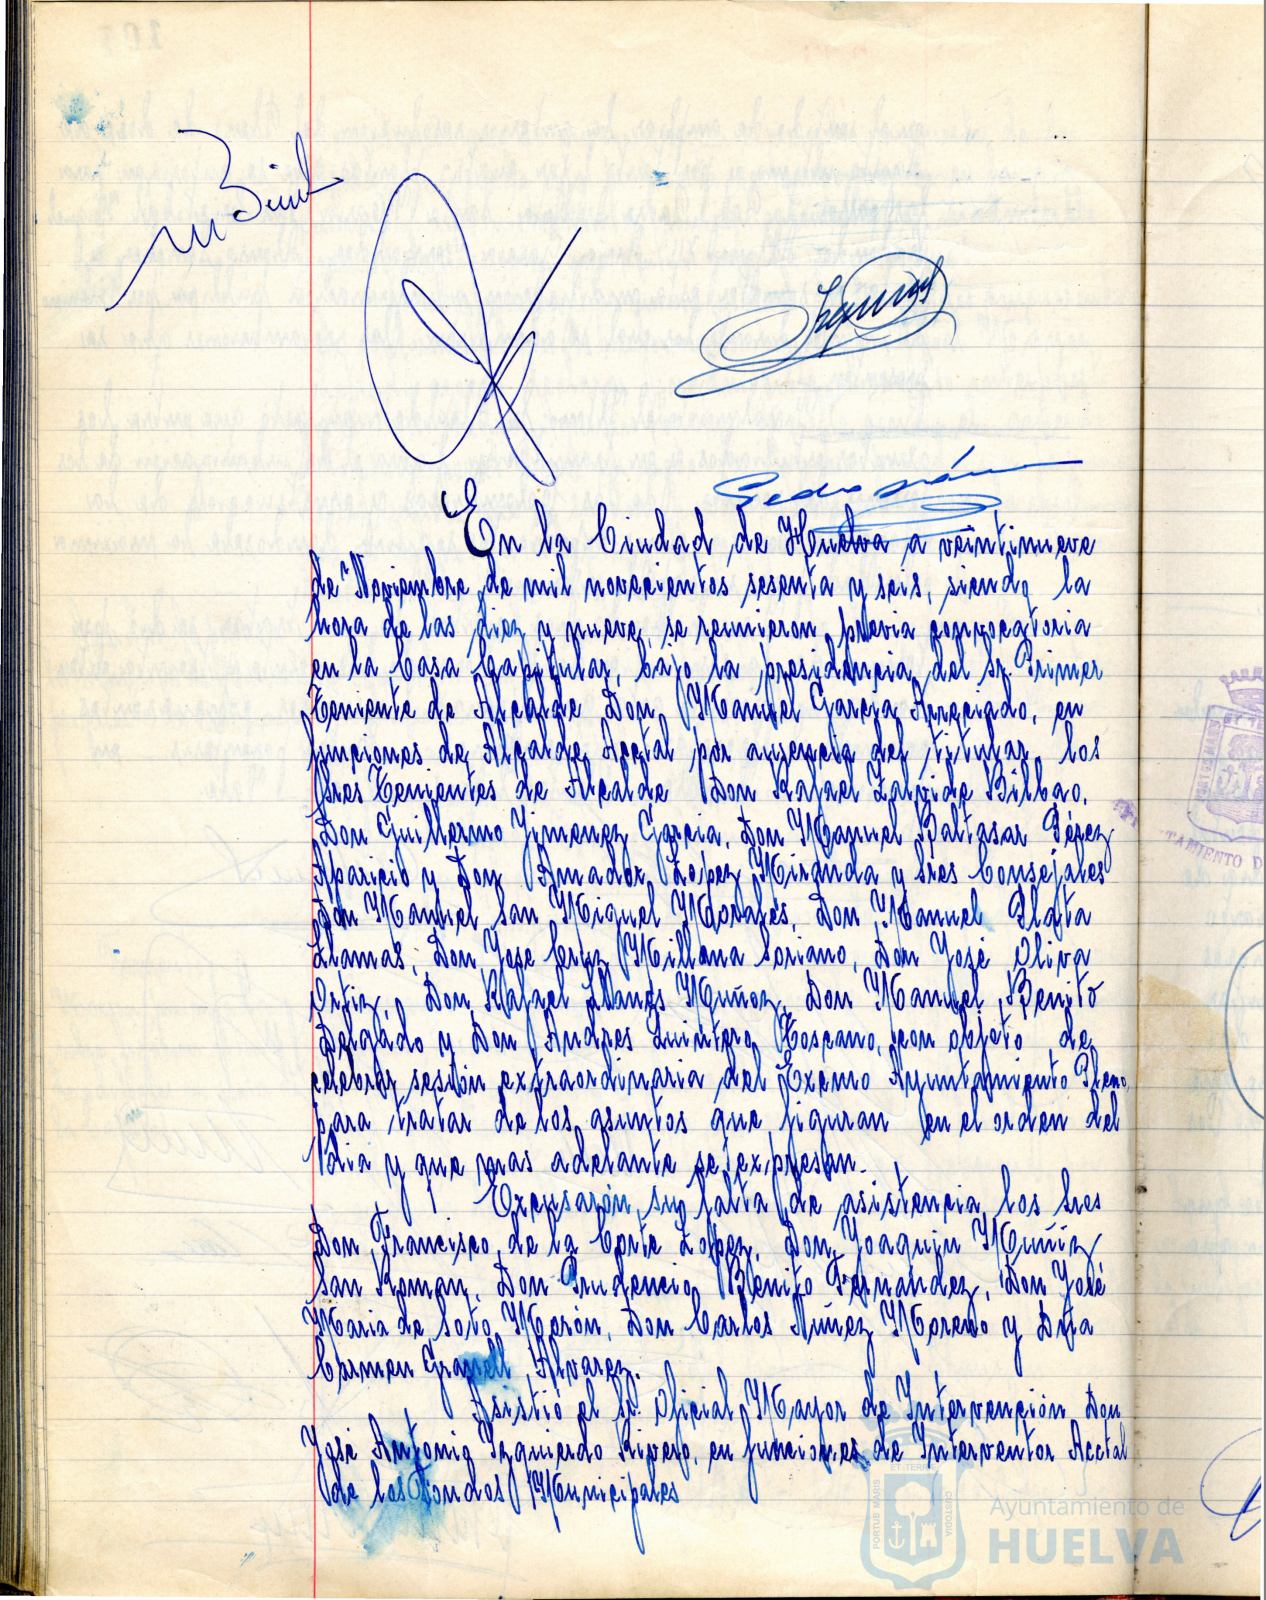 En la Ciudad de Huelva a veintinueve
de Noviembre de mil novecientos sesenta y seis, siendo la
hora de las diez y nueve, se reunieron previa convocatoria
en la Casa Capitular, bajo la presidencia del Sr. Primer
Teniente de Alcalde Don Manuel Garcia Apreciado, en
funciones de Alcalde Acctal por ausencia del titular, los
Sres Tenientes de Alcalde Don Rafael Zalvide Bilbao,
Don Guillermo Jimenez Garcia, Don Manuel Baltasar Pérez
Aparicio y Don Amador Lopez Miranda y Sres Consejales
Don Manuel San Miguel Morales, Don Manuel Plata
Llamas, Don Jose Cruz Millana Soriano, Don José Oliva
Ortiz, Don Rafael Llanes Muñoz, Don Manuel Benito
Delgado y Don Andres Quintero Toscano, con objeto de
celebrar sesión extraordinaria del Excmo Ayuntamiento Pleno,
para tratar de los asuntos que figuran en el orden del
dia y que mas adelante se expresan.
Excusarón su falta de asistencia los Sres
Don Francisco de la Corte Lopez, Don Joaquin Muñiz
San Roman, Don Prudencio Benito Fernandez, Don José
Maria de Soto Morón, Don Carlos Núñez Moreno y Dña
Carmen Granell Alvarez.
Asistió el Sr. Oficial Mayor de Intervención Don
José Antonio Izquierdo Rivero, en funciones de Interventor Acctal
de los Fondos Municipales
Ayuntamiento de
HUELVA
PORTUS MARIS
ET TERRE
CUSTODIA